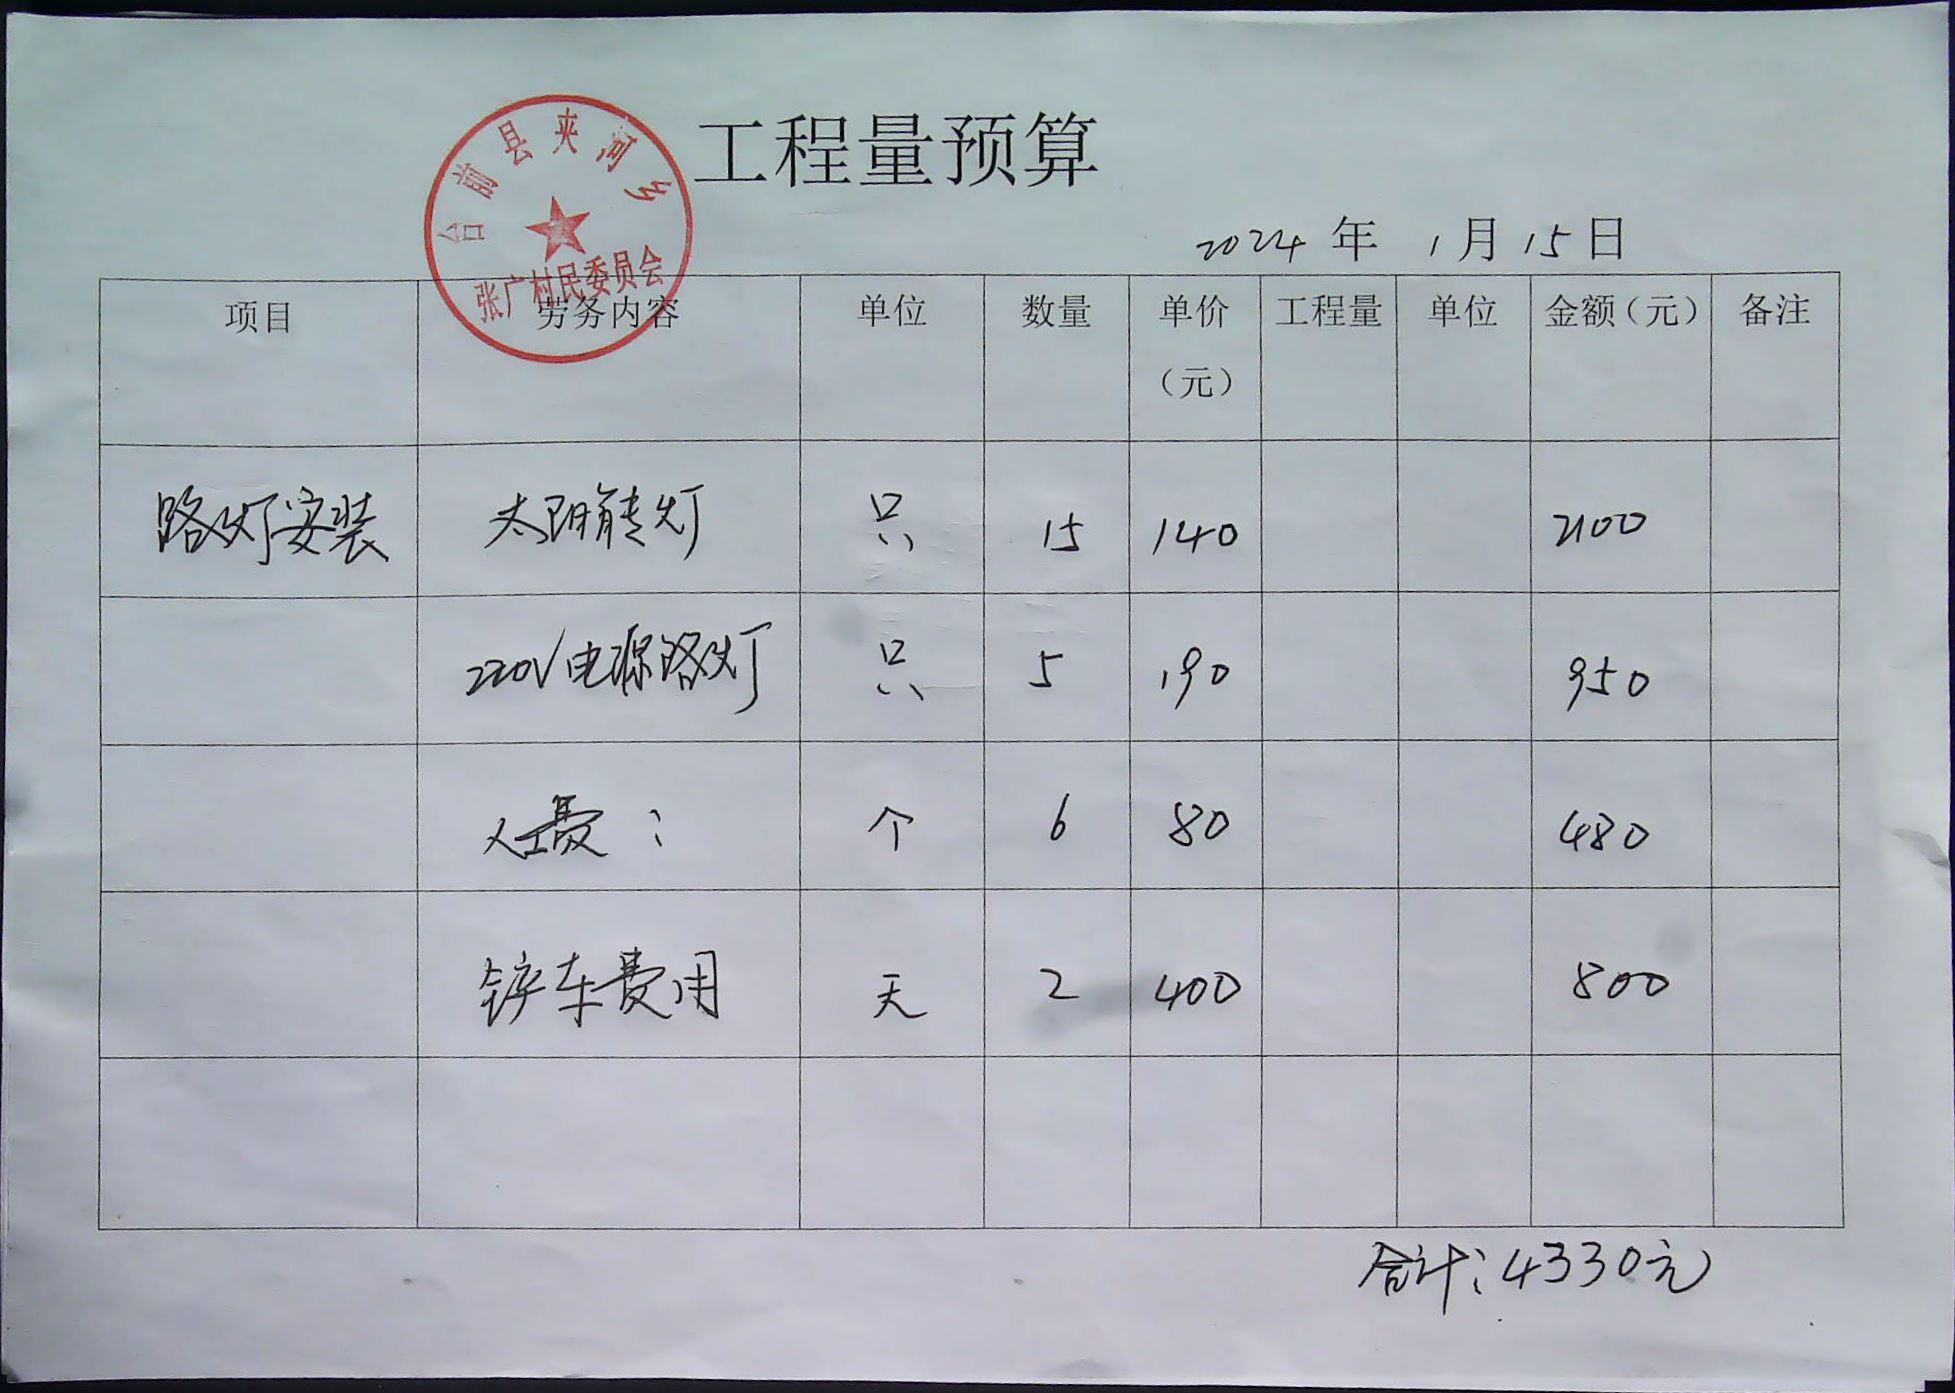 工程量预算
台前县夹河乡
张广村民委员会
2024 年 1 月 15 日
项目 劳务内容 单位 数量 单价（元） 工程量 单位 金额（元） 备注
路灯安装 太阳能灯 只 15 140 2100
220V电源路灯 只 5 190 950
人工费： 个 6 80 480
铲车费用 天 2 400 800
合计：4330元